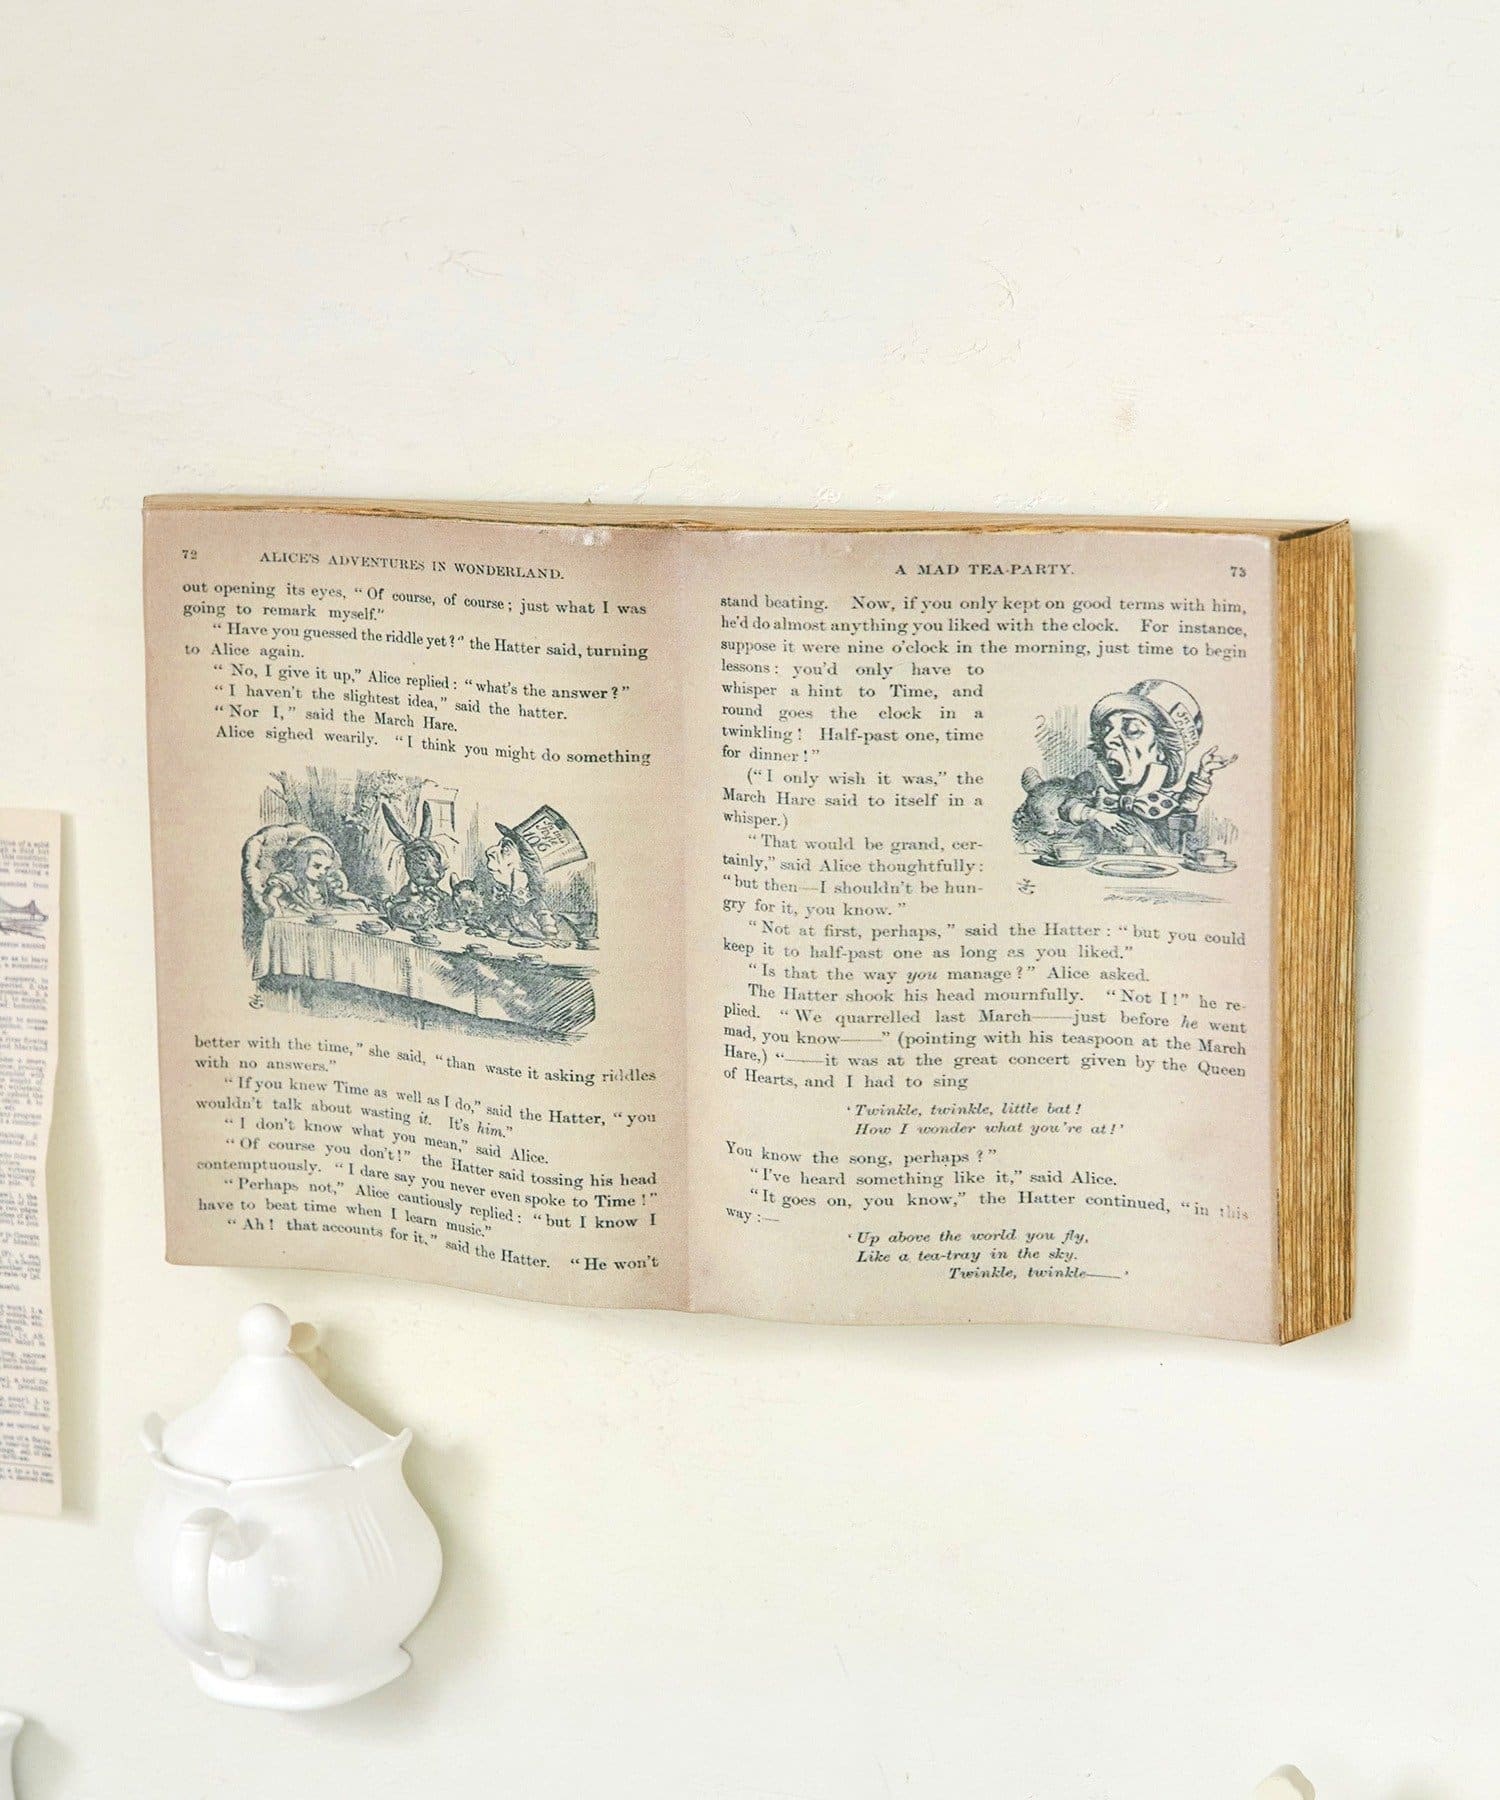 72
ALICE'S ADVENTURES IN WONDERLAND.
out opening its eyes, "Of course, of course; just what I was
going to remark myself."
"Have you guessed the riddle yet?" the Hatter said, turning
to Alice again.
"No, I give it up," Alice replied: "what's the answer?"
"I haven't the slightest idea," said the hatter.
"Nor I," said the March Hare.
Alice sighed wearily. "I think you might do something
In this
Style
10/6
better with the time," she said, "than waste it asking riddles
with no answers."
"If you knew Time as well as I do," said the Hatter, "you
wouldn't talk about wasting it. It's him."
"I don't know what you mean," said Alice.
"Of course you don't!" the Hatter said tossing his head
contemptuously. "I dare say you never even spoke to Time!"
"Perhaps not," Alice cautiously replied: "but I know I
have to beat time when I learn music."
"Ah! that accounts for it," said the Hatter. "He won't
A MAD TEA-PARTY.
73
stand beating. Now, if you only kept on good terms with him,
he'd do almost anything you liked with the clock. For instance,
suppose it were nine o'clock in the morning, just time to begin
lessons: you'd only have to
whisper a hint to Time, and
round goes the clock in a
twinkling! Half-past one, time
for dinner!"
("I only wish it was," the
March Hare said to itself in a
whisper.)
"That would be grand, cer-
tainly," said Alice thoughtfully:
"but then—I shouldn't be hun-
gry for it, you know."
"Not at first, perhaps," said the Hatter: "but you could
keep it to half-past one as long as you liked."
"Is that the way you manage?" Alice asked.
The Hatter shook his head mournfully. "Not I!" he re-
plied. "We quarrelled last March——just before he went
mad, you know——" (pointing with his teaspoon at the March
Hare,) "——it was at the great concert given by the Queen
of Hearts, and I had to sing
'Twinkle, twinkle, little bat!
How I wonder what you're at!'
You know the song, perhaps?"
"I've heard something like it," said Alice.
"It goes on, you know," the Hatter continued, "in this
way:—
'Up above the world you fly,
Like a tea-tray in the sky.
Twinkle, twinkle——'